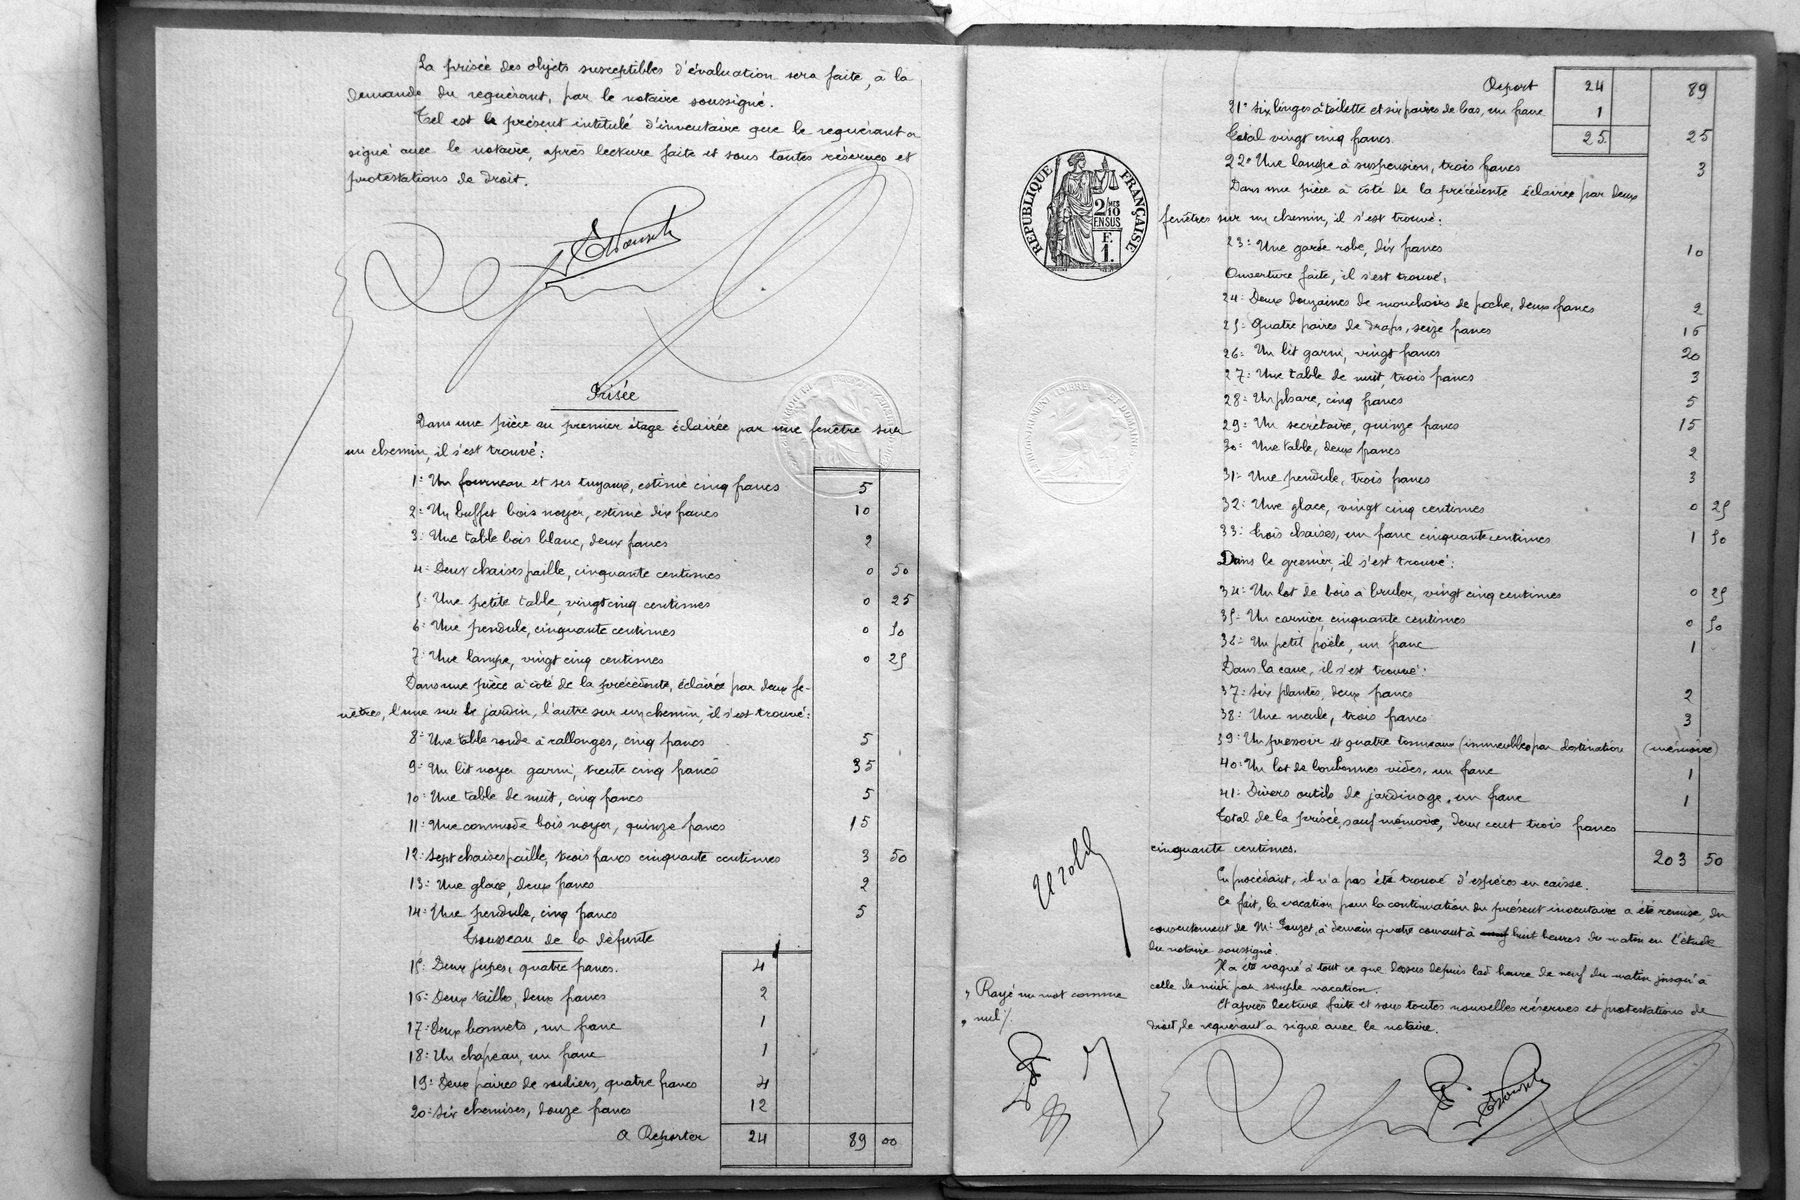 La prisée des objets susceptibles d'évaluation sera faite, à la
demande du requérant, par le notaire soussigné.
Tel est le présent intitulé d'inventaire que le requérant a
signé avec le notaire, après lecture faite et sous toutes réserves et
protestations de droit.
Prisée
Dans une pièce au premier étage éclairée par une fenêtre sur
un chemin, il s'est trouvé:
1º Un fourneau et ses tuyaux, estimé cinq francs 5
2º Un buffet bois noyer, estimé dix francs 10
3º Une table bois blanc, deux francs 2
4º Deux chaises paille, cinquante centimes 0 50
5º Une petite table, vingt cinq centimes 0 25
6º Une pendule, cinquante centimes 0 50
7º Une lampe, vingt cinq centimes 0 25
Dans une pièce à côté de la précédente, éclairée par deux fe-
nêtres, l'une sur le jardin, l'autre sur un chemin, il s'est trouvé:
8º Une table ronde à rallonges, cinq francs 5
9º Un lit noyer garni, trente cinq francs 35
10º Une table de nuit, cinq francs 5
11º Une commode bois noyer, quinze francs 15
12º Sept chaises paille, trois francs cinquante centimes 3 50
13º Une glace, deux francs 2
14º Une pendule, cinq francs 5
Trousseau de la défunte
15º Deux jupes, quatre francs. 4
16º Deux tailles, deux francs 2
17º Deux bonnets, un franc 1
18º Un chapeau, un franc 1
19º Deux paires de souliers, quatre francs 4
20º Six chemises, douze francs 12
A Reporter 24 89 00
Report 24 89
21º Six linges à toilette et six paires de bas, un franc 1
Total vingt cinq francs 25 25
22º Une lampe à suspension, trois francs 3
Dans une pièce à côté de la précédente éclairée par deux
fenêtres sur un chemin, il s'est trouvé:
23º Une garde robe, dix francs 10
Ouverture faite, il s'est trouvé:
24º Deux douzaines de mouchoirs de poche, deux francs 2
25º Quatre paires de draps, seize francs 16
26º Un lit garni, vingt francs 20
27º Une table de nuit, trois francs 3
28º Un phare, cinq francs 5
29º Un secrétaire, quinze francs 15
30º Une table, deux francs 2
31º Une pendule, trois francs 3
32º Une glace, vingt cinq centimes 0 25
33º Trois chaises, un franc cinquante centimes 1 50
Dans le grenier, il s'est trouvé:
34º Un lot de bois à bruler, vingt cinq centimes 0 25
35º Un carnier, cinquante centimes 0 50
36º Un petit poële, un franc 1
Dans la cave, il s'est trouvé:
37º Six plantes, deux francs 2
38º Une meule, trois francs 3
39º Un pressoir et quatre tonneaux (immeubles par destination (mémoire)
40º Un lot de bonbonnes vides, un franc 1
41º Divers outils de jardinage, un franc 1
Total de la prisée, sauf mémoire, deux cent trois francs
cinquante centimes. 203 50
En procédant, il n'a pas été trouvé d'espèces en caisse.
Ce fait, la vacation pour la continuation du présent inventaire a été remise, du
consentement de Mr. Pouzet, à demain quatre courant à neuf huit heures du matin en l'étude
du notaire soussigné.
Il a été vaqué à tout ce que dessus depuis lad. heure de neuf du matin jusqu'à
celle de midi par simple vacation.
Et après lecture faite et sous toutes nouvelles réserves et protestations de
droit, le requérant a signé avec le notaire.
Rayé un mot comme
nul
RÉPUBLIQUE FRANÇAISE
2/10 MES
EN SUS
F.
1.